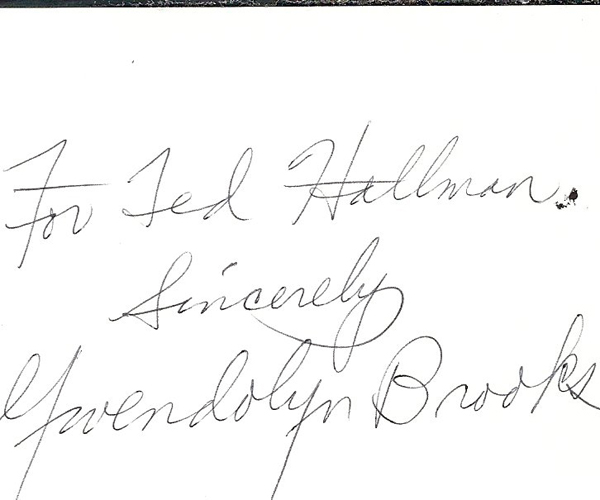 For Ted Hallman.
Sincerely
Gwendolyn Brooks